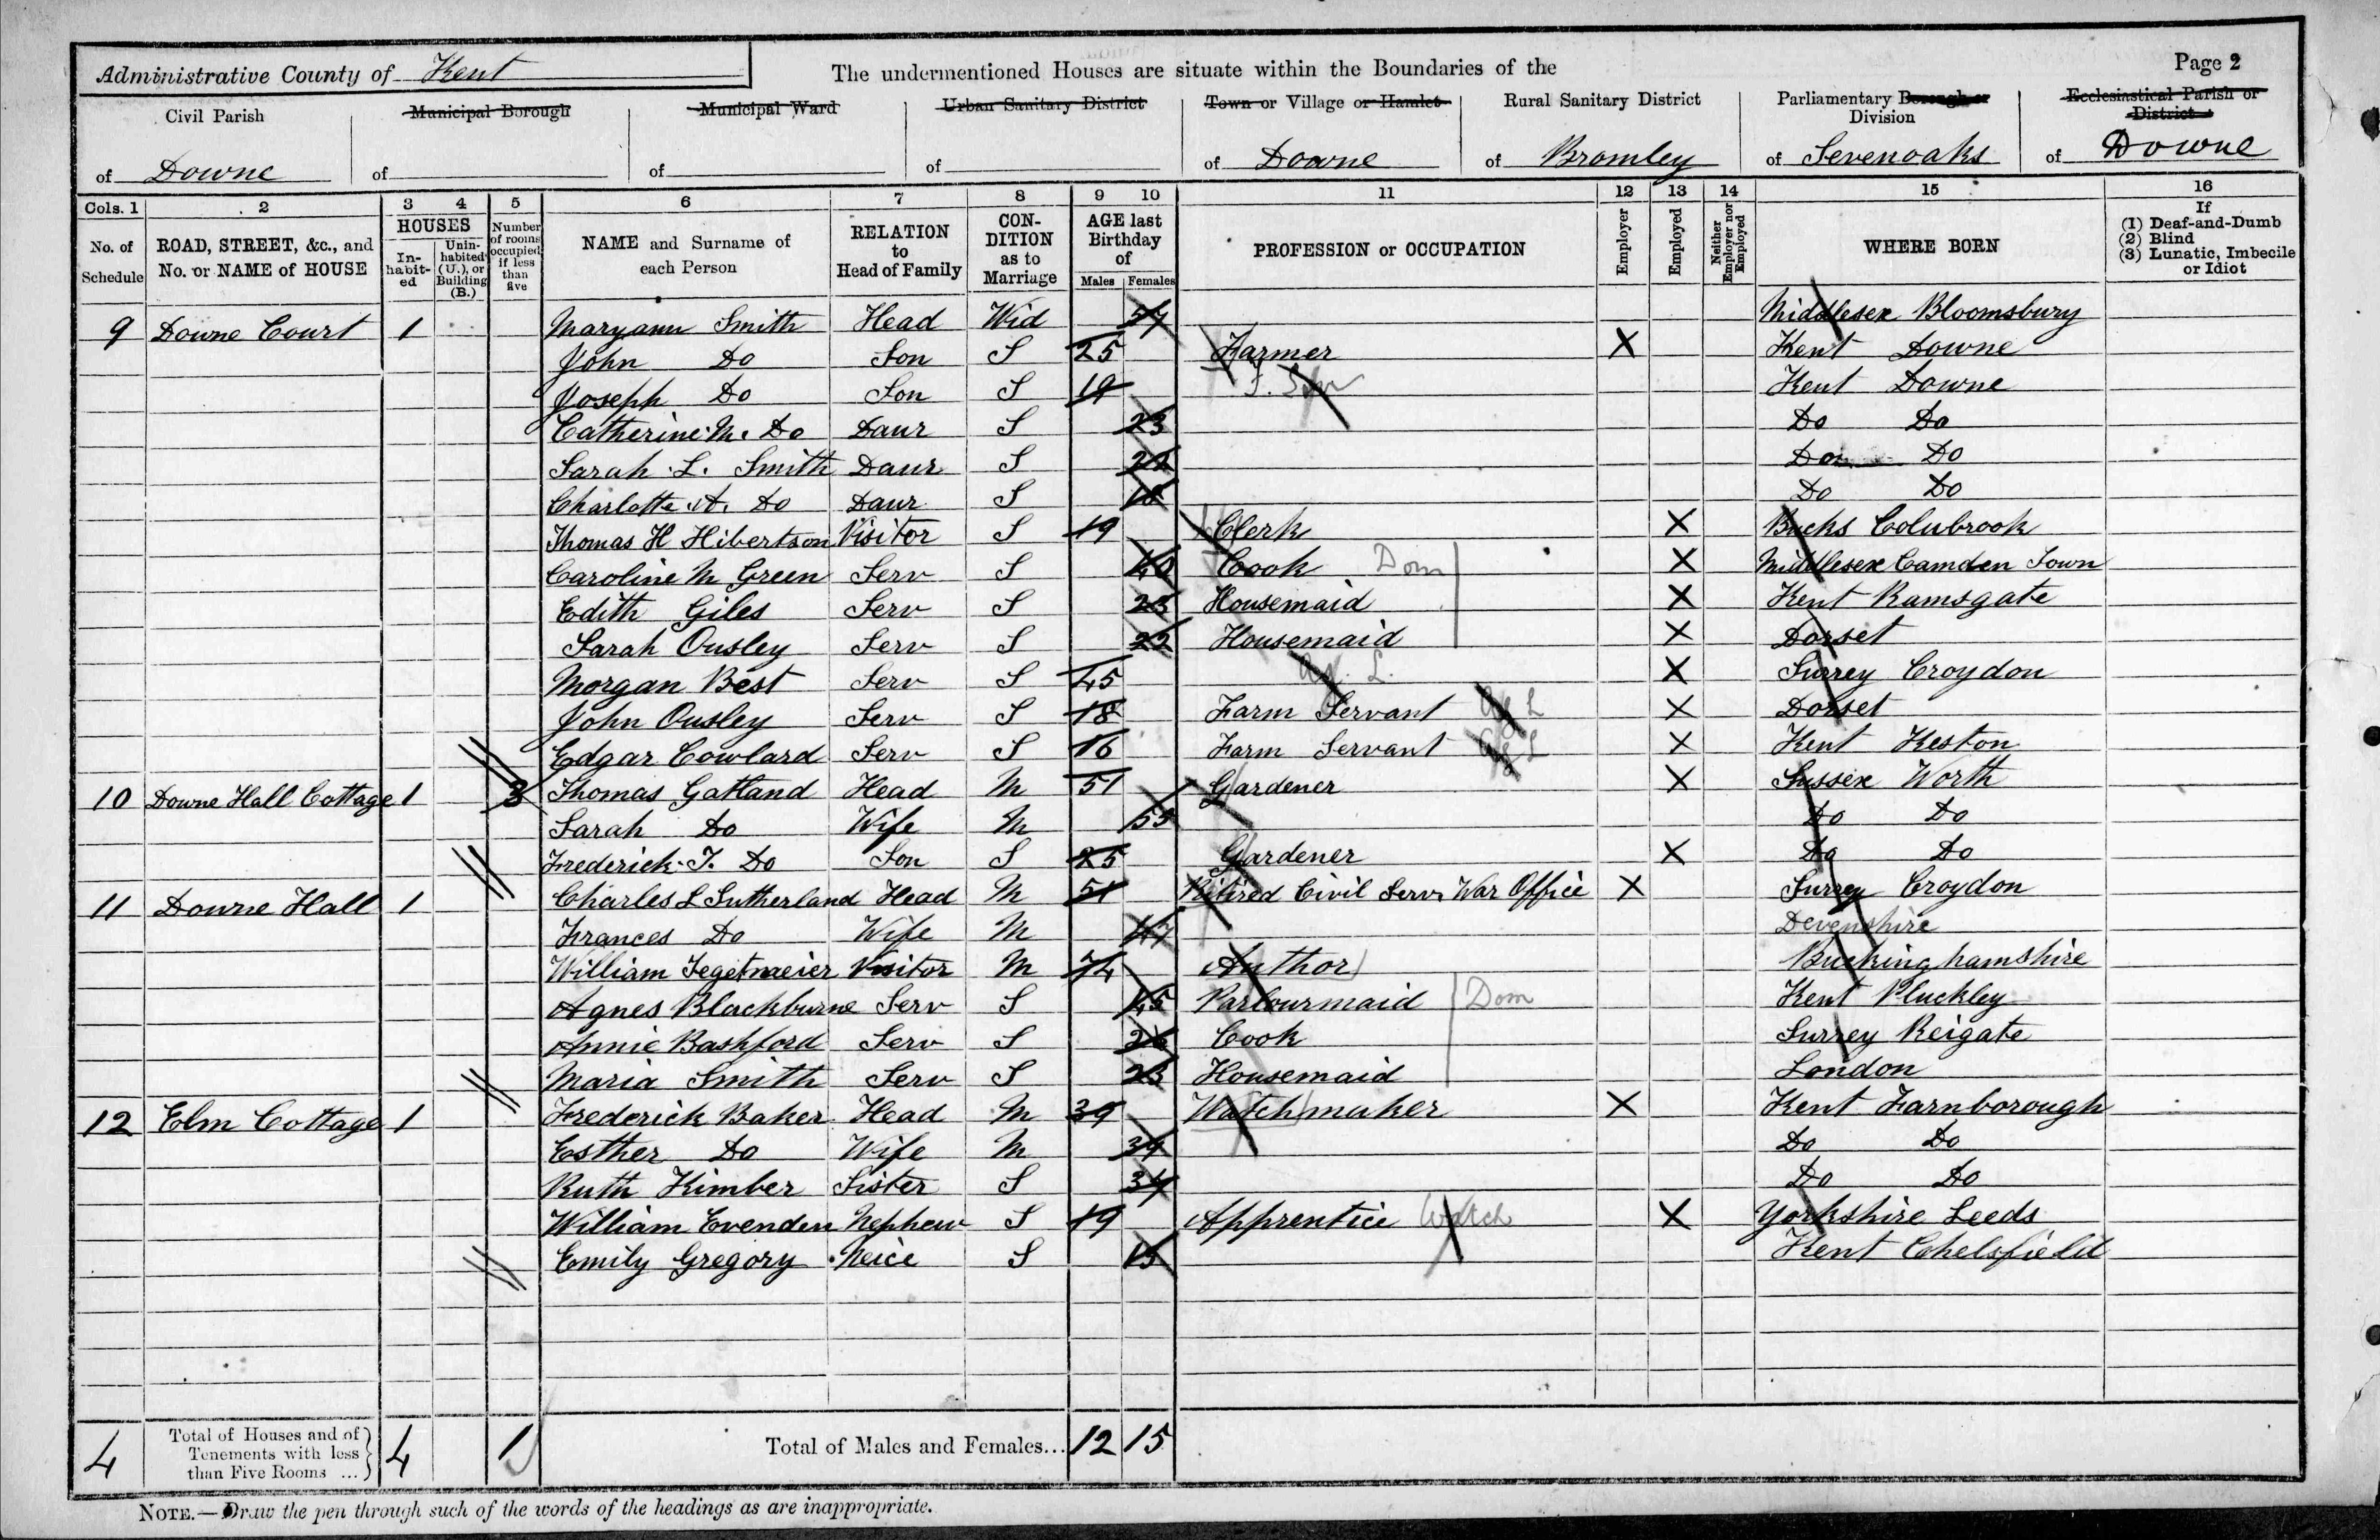 Administrative County of Kent
The undermentioned Houses are situate within the Boundaries of the
Page 2
Civil Parish
of Downe
Municipal Borough
of
Municipal Ward
of
Urban Sanitary District
of
Town or Village or Hamlet
of Downe
Rural Sanitary District
of Bromley
Parliamentary Borough or Division
of Sevenoaks
Ecclesiastical Parish or District
of Downe
Cols. 1 2 3 4 5 6 7 8 9 10 11 12 13 14 15 16
No. of Schedule
ROAD, STREET, &c., and No. or NAME of HOUSE
HOUSES
In-habit-ed
Unin-habited (U.), or Building (B.)
Number of rooms occupied if less than five
NAME and Surname of each Person
RELATION to Head of Family
CON-DITION as to Marriage
AGE last Birthday of
Males Females
PROFESSION or OCCUPATION
Employer
Employed
Neither Employer nor Employed
WHERE BORN
If (1) Deaf-and-Dumb (2) Blind (3) Lunatic, Imbecile or Idiot
9 Downe Court 1 Maryann Smith Head Wid Middlesex Bloomsbury
John Do Son S 25 Farmer X Kent Downe
Joseph Do Son S 19 F. Son Kent Downe
Catherine M. Do Daur S 23 Do Do
Sarah L. Smith Daur S 22 Do Do
Charlotte A. Do Daur S 18 Do Do
Thomas H Hibertson Visitor S 19 Clerk X Bucks Colnbrook
Caroline M Green Serv S 40 Cook Dom X Middlesex Camden Town
Edith Giles Serv S 23 Housemaid X Kent Ramsgate
Sarah Ousley Serv S 22 Housemaid X Dorset
Morgan Best Serv S 45 Ag. L. X Surrey Croydon
John Ousley Serv S 18 Farm Servant Ag L X Dorset
Edgar Cowlard Serv S 16 Farm Servant Ag L X Kent Keston
10 Downe Hall Cottage 1 3 Thomas Gatland Head M 51 Gardener X Sussex Worth
Sarah Do Wife M 53 Do Do
Frederick T. Do Son S 25 Gardener X Do Do
11 Downe Hall 1 Charles L Sutherland Head M 51 Retired Civil Serv. War Office X Surrey Croydon
Frances Do Wife M 47 Devenshire
William Tegetmeier Visitor M 74 Author Buckinghamshire
Agnes Blackburne Serv S 45 Parlourmaid Dom Kent Pluckley
Annie Bashford Serv S 26 Cook Surrey Reigate
Maria Smith Serv S 23 Housemaid London
12 Elm Cottage 1 Frederick Baker Head M 39 Watchmaker X Kent Farnborough
Esther Do Wife M 39 Do Do
Ruth Kimber Sister S 34 Do Do
William Evenden Nephew S 19 Apprentice Watch X Yorkshire Leeds
Emily Gregory Neice S 15 Kent Chelsfield
4 Total of Houses and of Tenements with less than Five Rooms ... 4 1 Total of Males and Females... 12 15
NOTE.—Draw the pen through such of the words of the headings as are inappropriate.